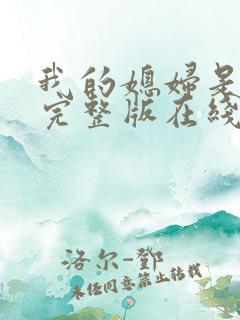 我的媳妇是
完整版在线
洛尔-邓
未经同意禁止转载